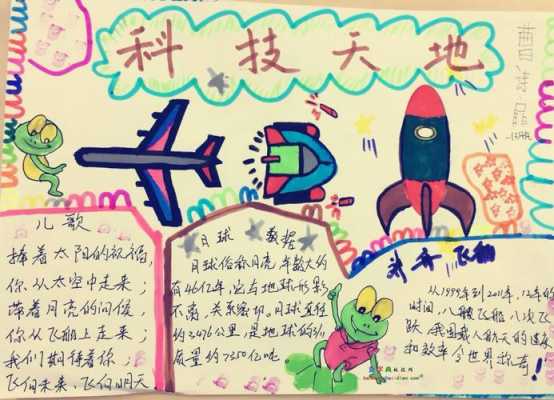 科技天地
儿歌
捧着太阳的祝福，
你从太空中走来；
带着月亮的问候，
你从飞船上走来；
我们期待着你；
飞向未来、飞向明天
月球 数据
月球俗称月亮年龄大约
有46亿年，它与地球形影
不离，关系密切，月球直径
约3476公里，是地球的3/11
质量约7350亿吨
神舟飞船
从1999年到2011年，12年的
时间，八艘飞船，八次飞
跃，我国载人航天的速度
和效率令世界惊奇！